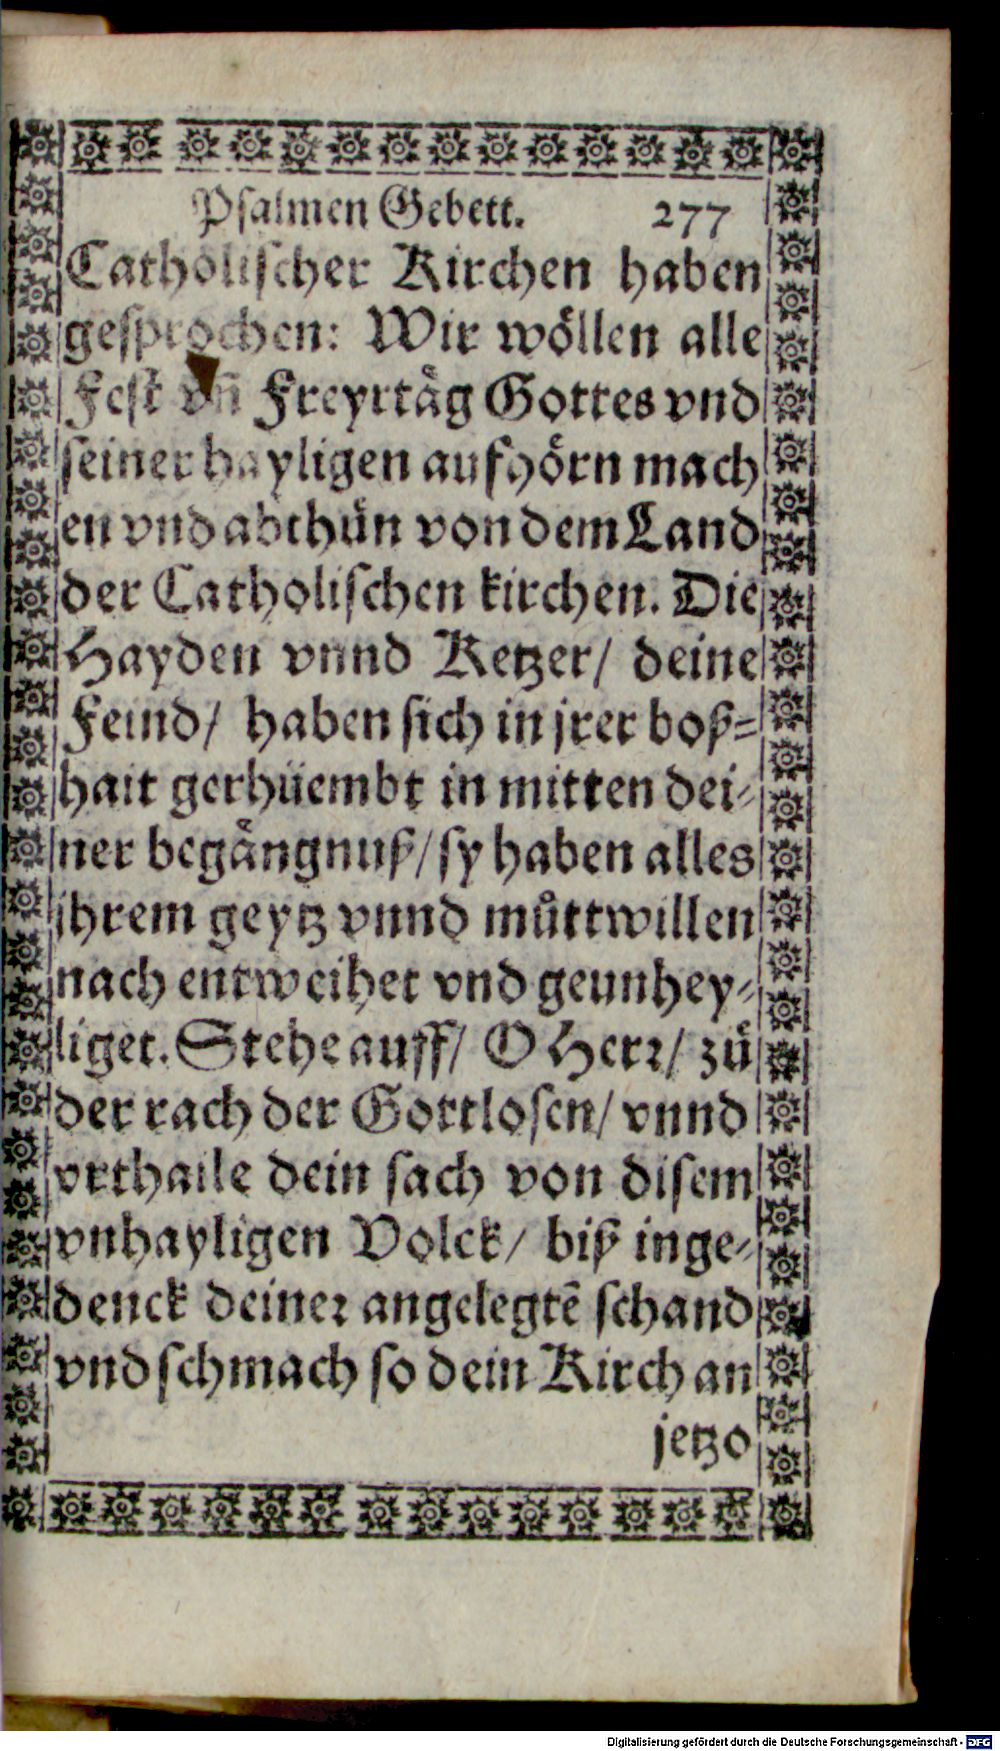 Psalmen Gebett. 277
Catholischer Kirchen haben
gesprochen: Wir wöllen alle
Fest vñ Freyrtåg Gottes vnd
seiner hayligen aufhörn mach
en vnd abthůn von dem Land
der Catholischen kirchen. Die
Hayden vnnd Ketzer/ deine
Feind/ haben sich in jrer boß-
hait gerhüembt in mitten dei-
ner begångnuß/ sy haben alles
ihrem geytz vnnd můttwillen
nach entweihet vnd geunhey-
liget. Stehe auff/ O Herr/ zů
der rach der Gottlosen/ vnnd
vrthaile dein sach von disem
vnhayligen Volck/ biß inge-
denck deiner angelegtē schand
vnd schmach so dein Kirch an
jetzo
Digitalisierung gefördert durch die Deutsche Forschungsgemeinschaft - DFG